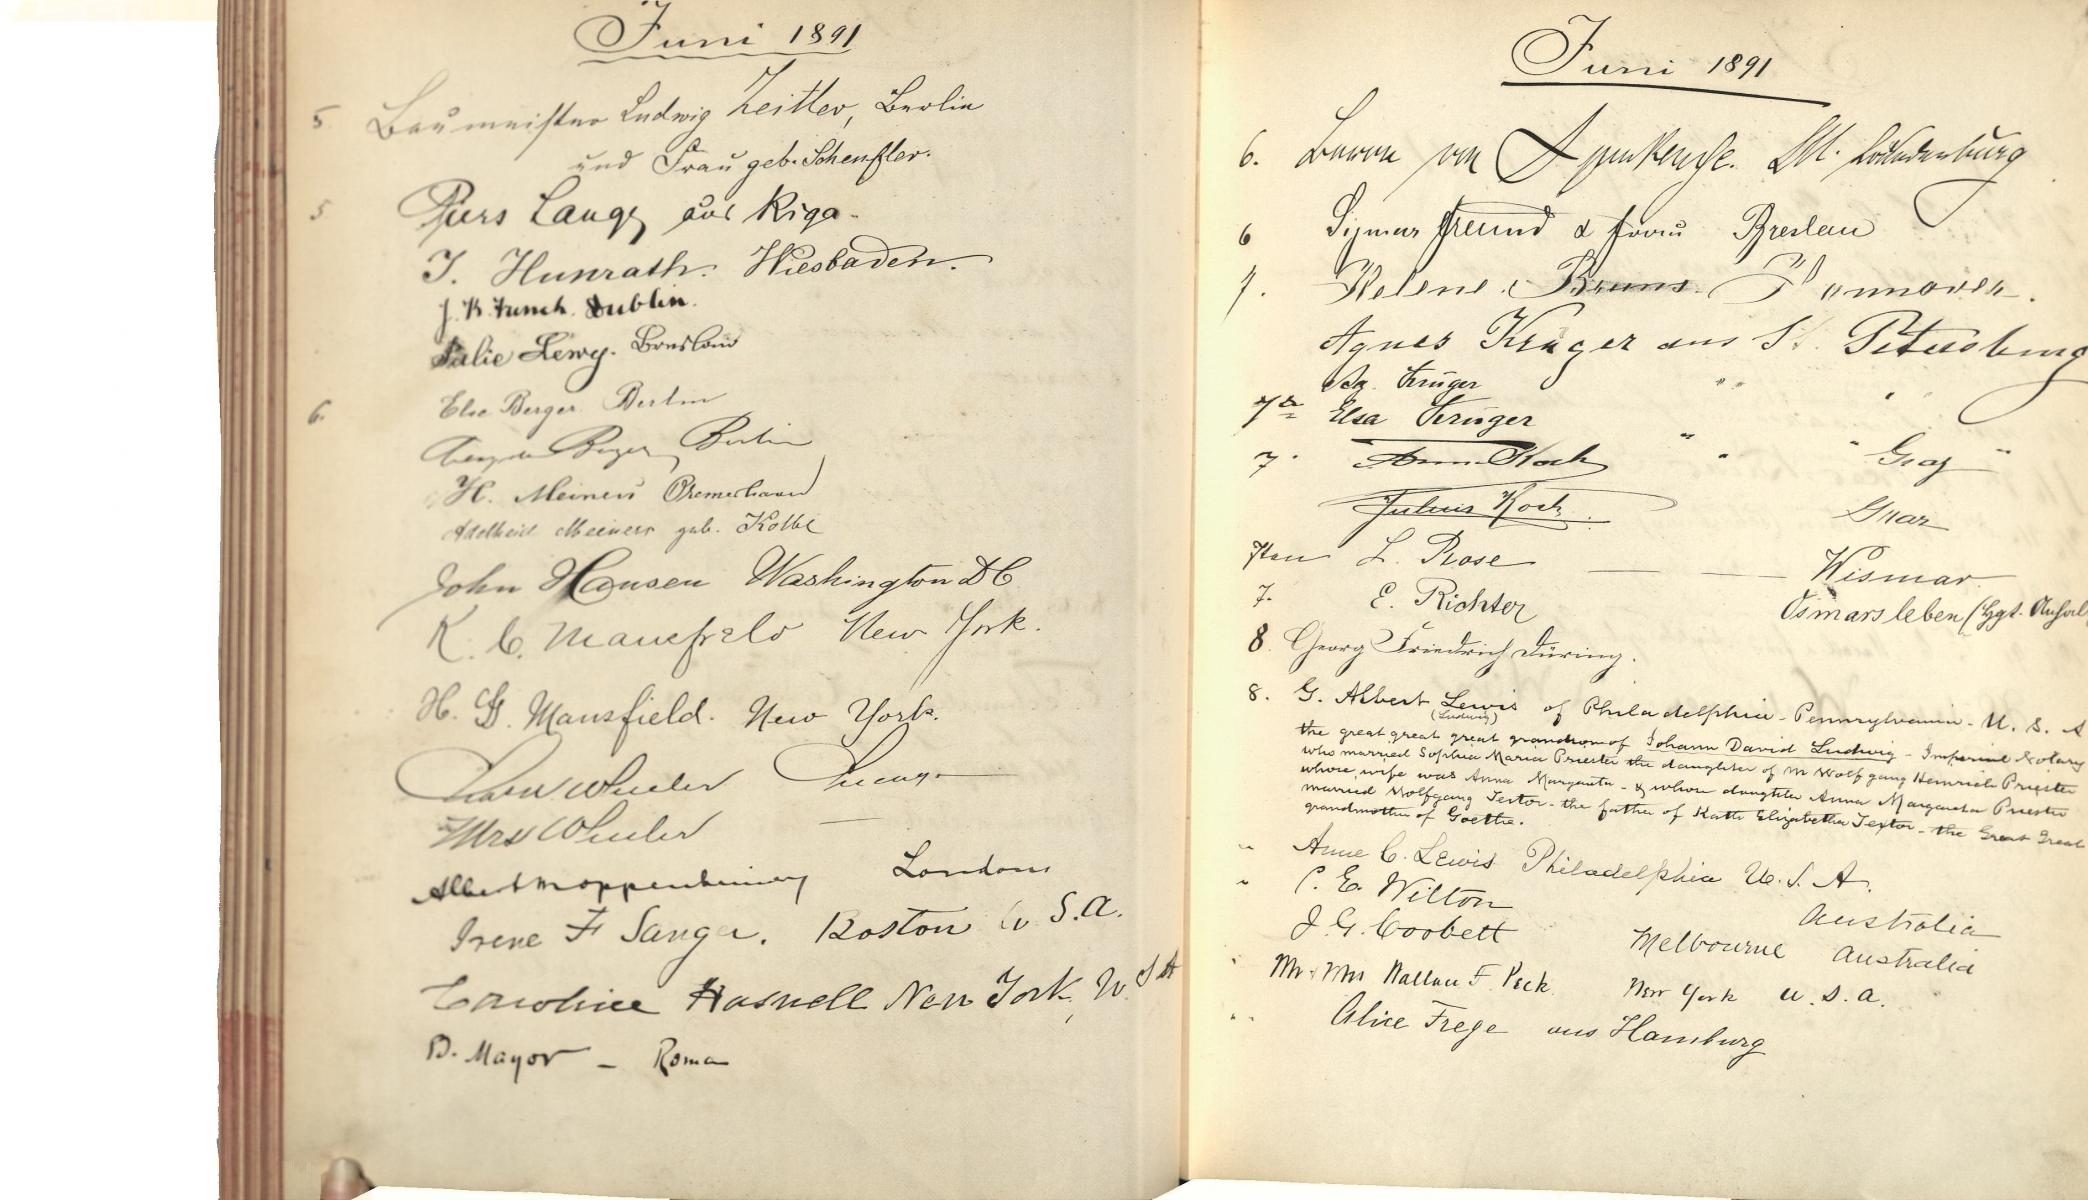 Juni 1891
5 Baumeister Ludwig Zeitler, Berlin
und Frau geb. Scheufler.
5 Lange aus Riga.
J. Hunrath. Wiesbaden.
Dublin.
Julie Lewy. Breslau
6. Else Berger Berlin
Berlin
H. Meiners Bremerhaven
Adelheid Meiners geb. Kolbe
John Hansen Washington DC
K. C. New York.
H. G. Mansfield. New York.
Wheeler Chicago
Mrs Wheeler —
London
Irene F Sanger. Boston U S.A.
Caroline Hasnell New York, U.S A
B. Mayor – Roma
Juni 1891
6. Baron von
6 Freund & Frau Breslau
7. Helene Bruns. Hannover.
Agnes Krüger aus St. Petersburg
Ag. Krüger " "
7te Elsa Krüger
7. Koch " " "
Julius Koch. Graz
7ten L. Rose — — Wismar.
7. E. Richter Osmarsleben (Hzgt. Anhalt
8 Georg Friedrich Düring.
8. G. Albert Lewis of Philadelphia - Pennsylvania - U. S. A
(Ludwig)
the great great great grandson of Johann David Ludwig - Imperial Notary
who married Sophia Maria Priester the daughter of M Wolfgang Heinrich Priester
whose wife was Anna Margareta - & whose daughter Anna Margareta Priester
married Wolfgang Textor - the father of Kath Elizabetha Textor - the Great Great
grandmother of Goethe.
" Anne C. Lewis Philadelphia U. S. A.
" C. E. Wilton Australia
J. G. Corbett Melbourne Australia
" Mr & Mrs F. Peck New York U. S. A.
" Alice Frege aus Hamburg